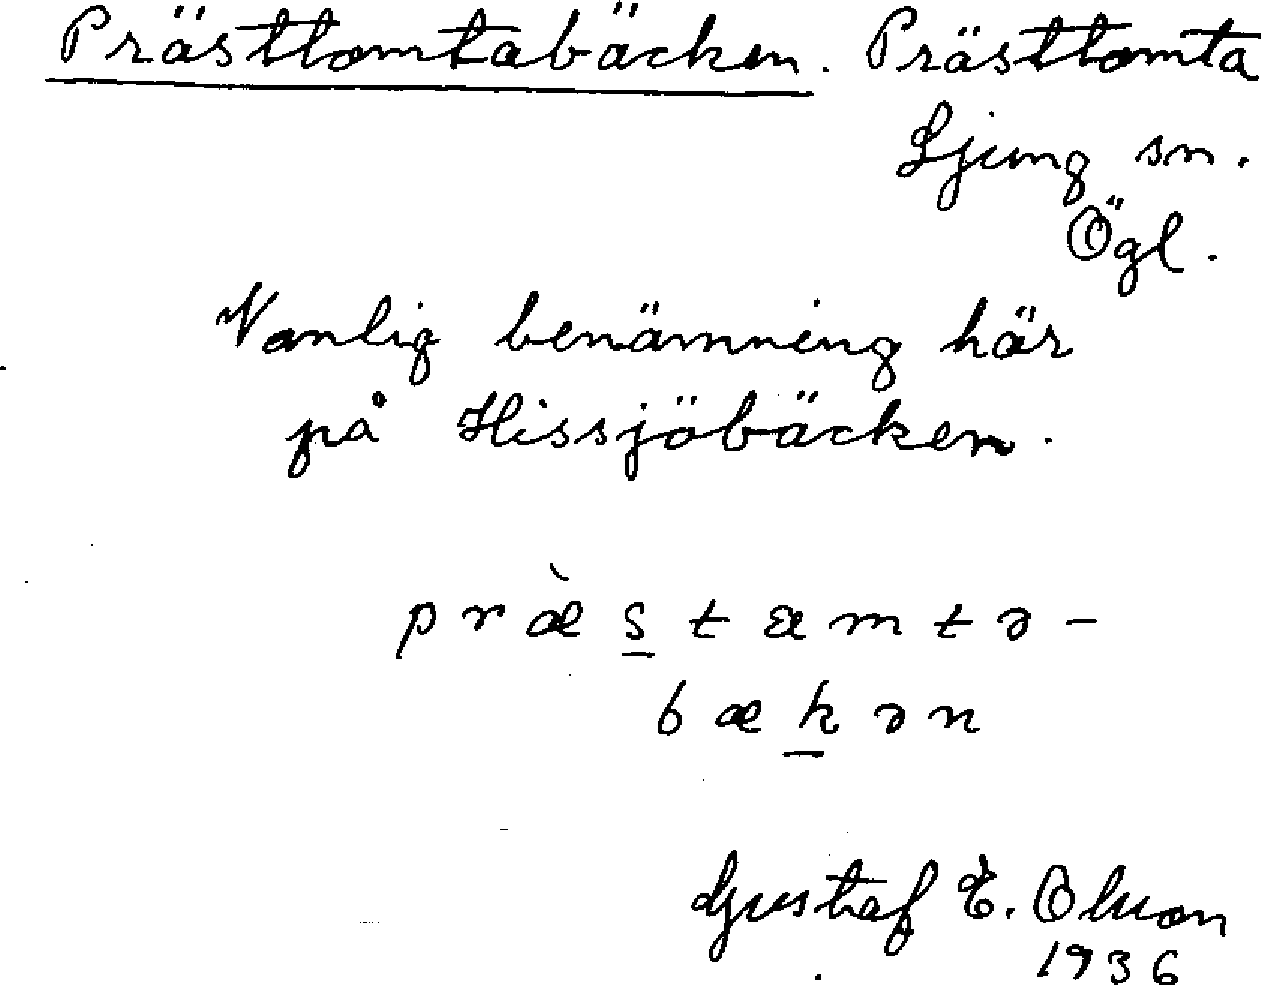 Prästtomtabäcken. Prästtomta
Ljung sn.
Ögl.
Vanlig benämning här
på Hissjöbäcken.
præ̀s̲tæmtə-
bæk̲ən
Gustaf E. Olsson
1936